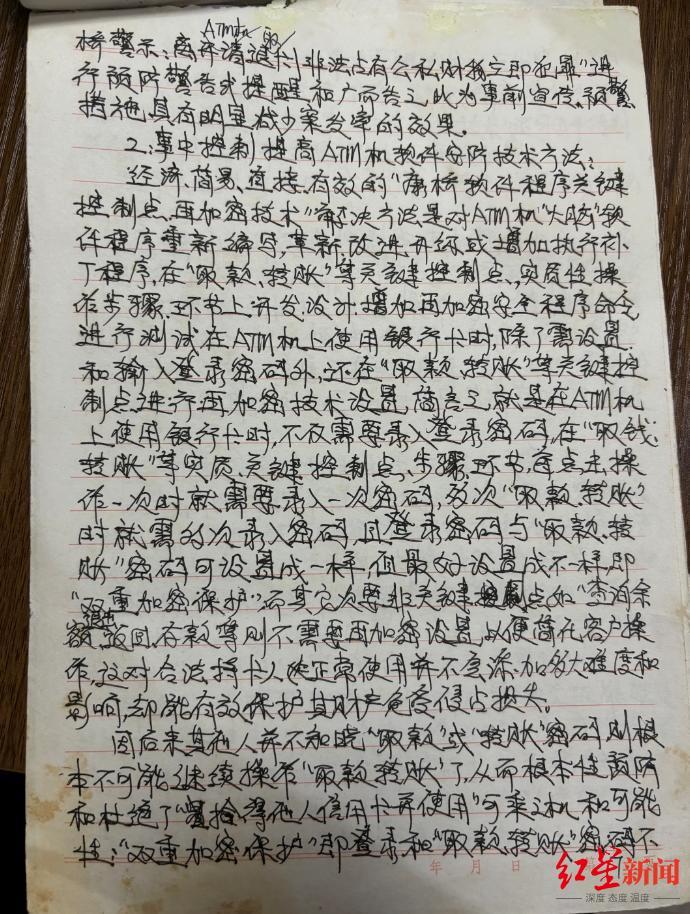 ATM机 取
桥警示:离开请退卡!非法占有公私财物立即犯罪"进
行预防警告或提醒和广而告之,此为事前宣传、预警
措施,具有明显减少案发率的效果。
2.事中控制提高ATM机软件安防技术方法:
经济、简易、直接、有效的"康桥软件程序关键
控制点,再加密技术"解决方法是对ATM机"大脑"软
件程序重新编写,革新改进升级或增加执行补
丁程序,在"取款、转账"等关键控制点、实质性操
作步骤、环节上开发、设计、增加再加密安全程序命令
进行测试在ATM机上使用银行卡时,除了需设置
和输入登录密码外,还在"取款、转账"等关键控
制点进行再加密技术设置,简言之,就是在ATM机
上使用银行卡时,不仅需要录入登录密码,在"取钱、
转账"等实质、关键控制点、步骤、环节,每点击、操
作一次时就需要录入一次密码,多次"取款、转账"
时就需多次录入密码,且登录密码与"取款、转
账"密码可设置成一样,但最好设置成不一样,即
"双重加密保护",而其它次要非关键控制点,如"查询余
额、返回、存款等则不需要再加密设置,以便简化客户操
作,这对合法持卡人他正常使用并不会添加多大难度和
影响,却能有效保护其财产免受侵占损失。
因后来其他人并不知晓"取款"或"转账"密码则根
本不可能继续操作"取款、转账"了,从而根本性预防
和杜绝了"捡拾得他人信用卡并使用"可乘之机和可能
性;"双重加密保护"即登录和"取款、转账"密码不
年 月 日
红星新闻
深度 态度 温度